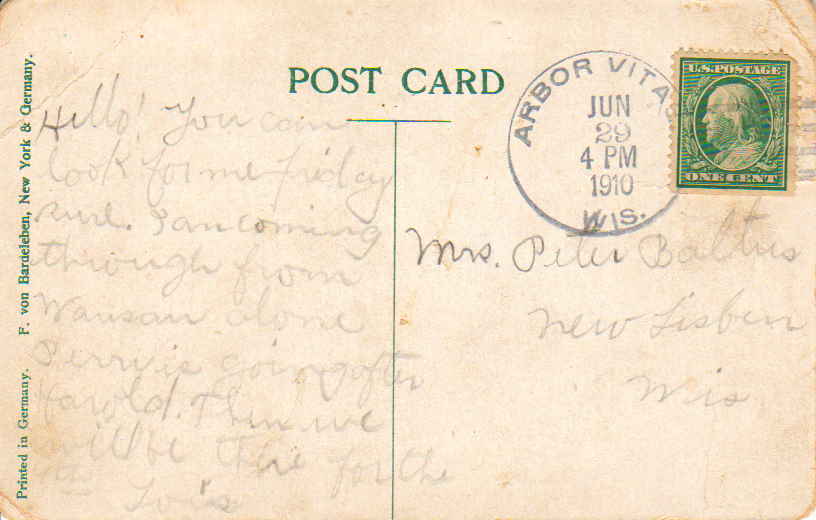 POST CARD
Printed in Germany. F. von Bardeleben, New York & Germany.
Hello! You can
look for me Friday
sure. I am coming
through from
Wausau alone
Perry is going after
Harold. Then we
will be there for the
4th Lois
ARBOR VITAE
JUN
29
4 PM
1910
WIS.
U.S. POSTAGE
ONE CENT
Mrs. Peter Baltus
New Lisbon
Wis